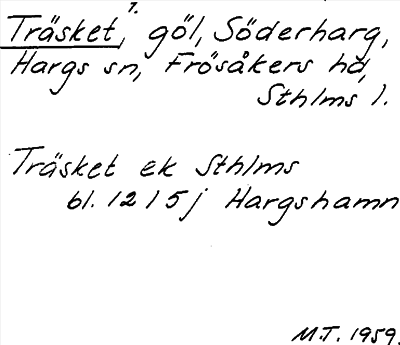 Träsket, 1. göl, Söderharg,
Hargs sn, Frösåkers hd,
Sthlms l.
Träsket ek Sthlms
bl. 12 I 5j Hargshamn
M.T. 1959.